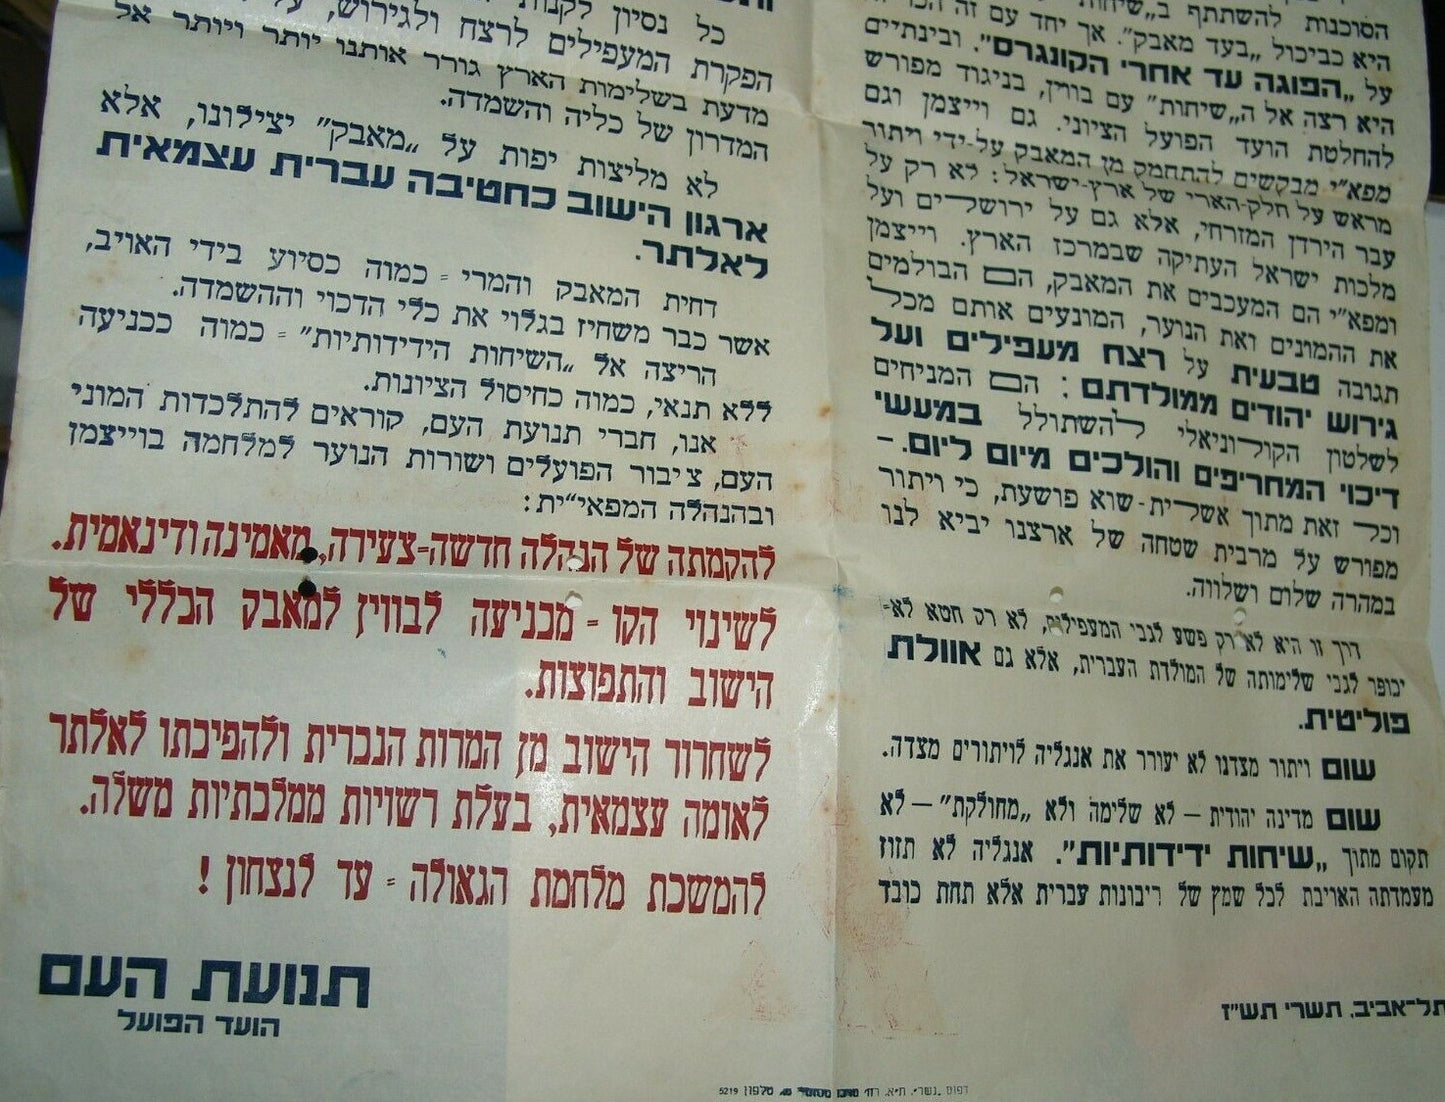 הסוכנות להשתתף ב„שיחות
היא כביכול „בעד מאבק”. אך יחד עם זה
על „הפוגה עד אחרי הקונגרס”. ובינתיים
היא רצה אל ה„שיחות” עם בווין, בניגוד מפורש
להחלטת הועד הפועל הציוני. גם וייצמן וגם
מפא״י מבקשים להתחמק מן המאבק על-ידי ויתור
מראש על חלק-הארי של ארץ-ישראל: לא רק על
עבר הירדן המזרחי, אלא גם על ירושלים ועל
מלכות ישראל העתיקה שבמרכז הארץ. וייצמן
ומפא״י הם המעכבים את המאבק, הם הבולמים
את ההמונים ואת הנוער, המונעים אותם מכל
תגובה טבעית על רצח מעפילים ועל
גירוש יהודים ממולדתם; הם המניחים
לשלטון הקולוניאלי להשתולל במעשי
דיכוי המחריפים והולכים מיום ליום. –
וכל זאת מתוך אשלית-שוא פושעת, כי ויתור
מפורש על מרבית שטחה של ארצנו יביא לנו
במהרה שלום ושלווה.
דרך זו היא לא רק פשע לגבי המעפילים, לא רק חטא לא-
יכופר לגבי שלימותה של המולדת העברית, אלא גם אוולת
פוליטית.
שום ויתור מצדנו לא יעורר את אנגליה לויתורים מצדה.
שום מדינה יהודית – לא שלימה ולא „מחולקת” – לא
תקום מתוך „שיחות ידידותיות”. אנגליה לא תזוז
מעמדתה האויבת לכל שמץ של ריבונות עברית אלא תחת כובד
תל-אביב, תשרי תש״ז
כל נסיון לקנות
הפקרת המעפילים לרצח ולגירוש,
מדעת בשלימות הארץ גורר אותנו יותר ויותר אל
המדרון של כליה והשמדה.
לא מליצות יפות על „מאבק” יצילונו, אלא
ארגון הישוב כחטיבה עברית עצמאית
לאלתר.
דחית המאבק והמרי - כמוה כסיוע בידי האויב,
אשר כבר משחיז בגלוי את כלי הדכוי וההשמדה.
הריצה אל „השיחות הידידותיות” - כמוה ככניעה
ללא תנאי, כמוה כחיסול הציונות.
אנו, חברי תנועת העם, קוראים להתלכדות המוני
העם, ציבור הפועלים ושורות הנוער למלחמה בוייצמן
ובהנהלה המפאי״ית:
להקמתה של הנהלה חדשה-צעירה, מאמינה ודינאמית.
לשינוי הקו - מכניעה לבווין למאבק הכללי של
הישוב והתפוצות.
לשחרור הישוב מן המרות הנכרית ולהפיכתו לאלתר
לאומה עצמאית, בעלת רשויות ממלכתיות משלה.
להמשכת מלחמת הגאולה - עד לנצחון!
תנועת העם
הועד הפועל
דפוס „נשר”, ת״א, רח׳ טלפון 5219